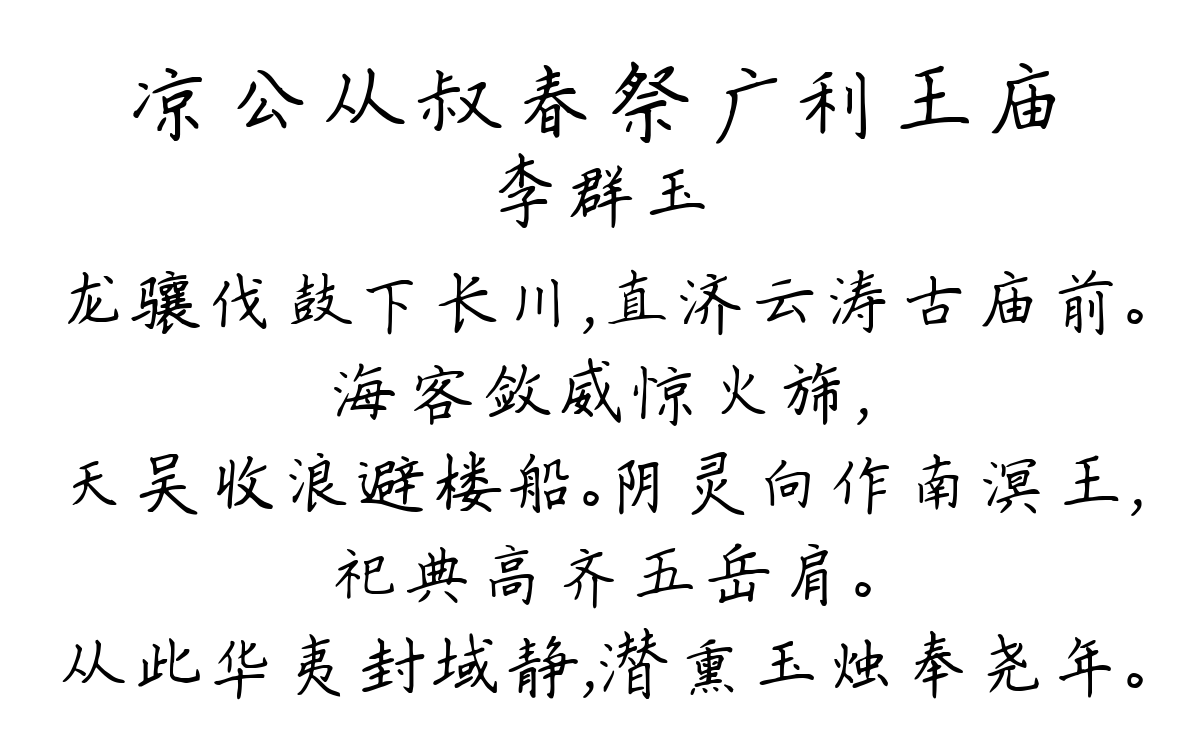 凉公从叔春祭广利王庙
李群玉
龙骧伐鼓下长川,直济云涛古庙前。
海客敛威惊火旆,
天吴收浪避楼船。阴灵向作南溟王,
祀典高齐五岳肩。
从此华夷封域静,潜熏玉烛奉尧年。